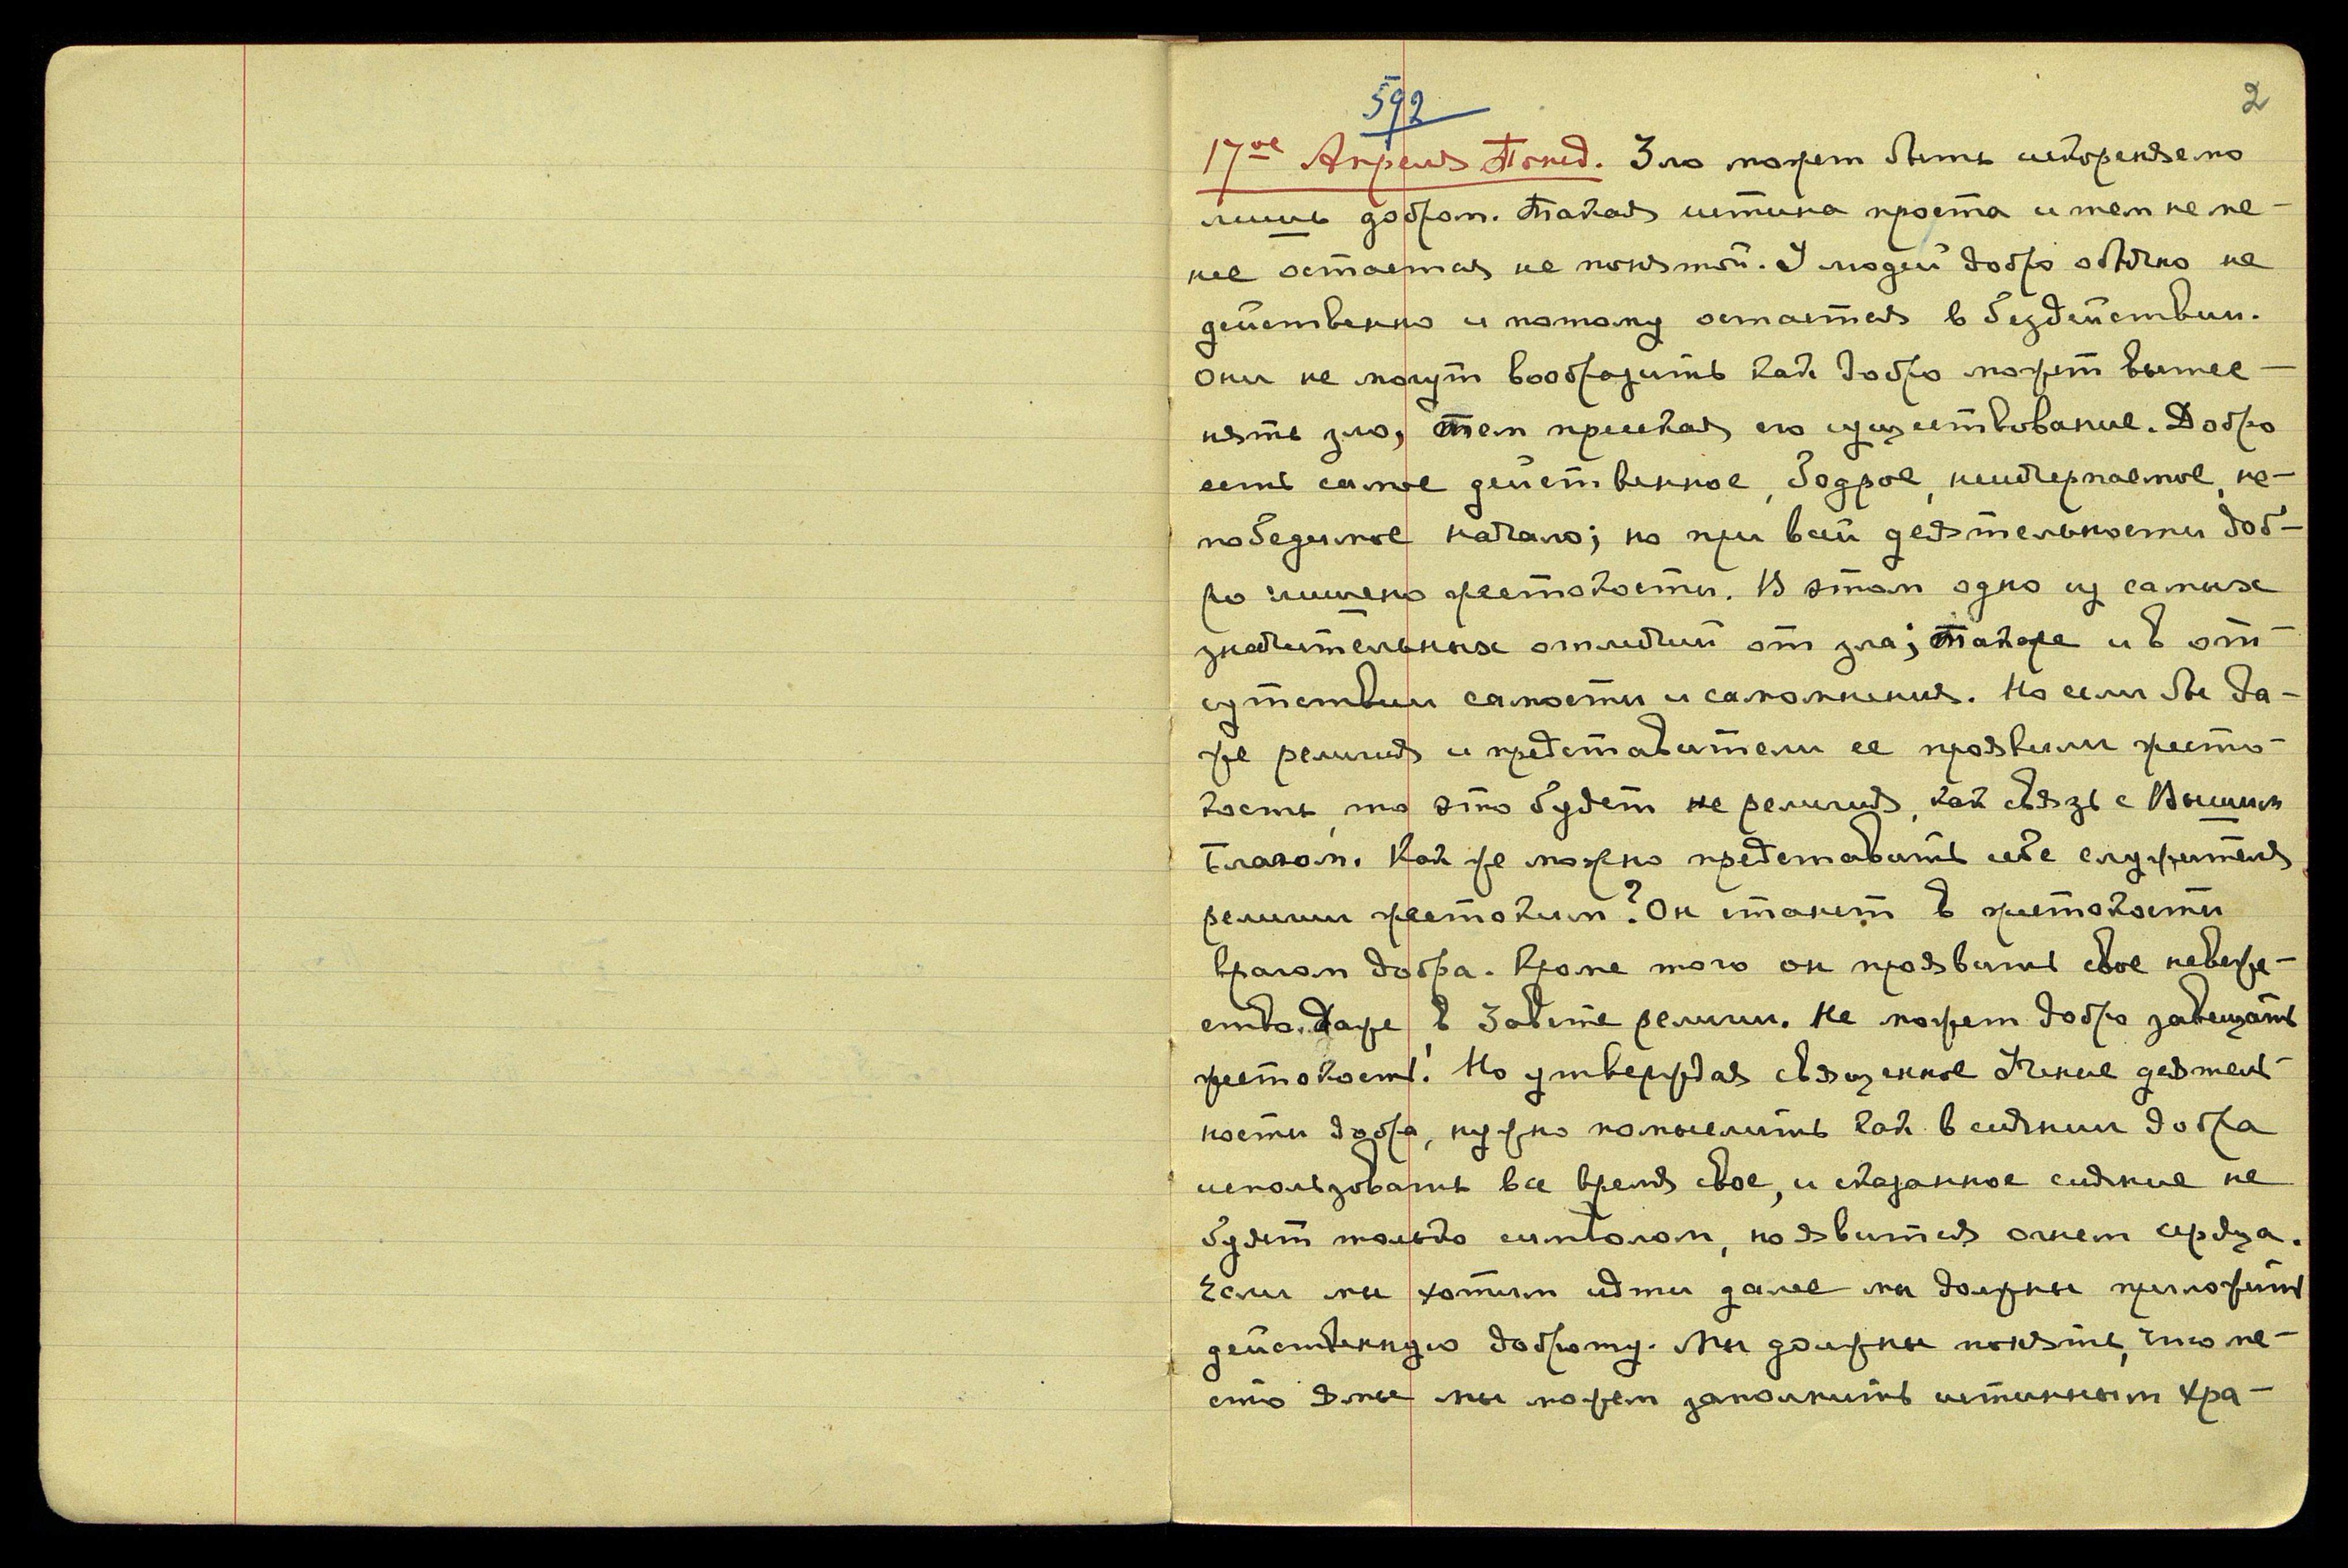 592
2
17ое Апреля Понед. Зло может быть искореняемо
лишь добром. Такая истина проста и тем не ме-
нее остается не понятой. У людей добро обычно не
действенно и потому остается в бездействии.
Они не могут вообразить как добро может вытес-
нять зло, тем пресекая его существование. Добро
есть самое действенное, бодрое, неисчерпаемое, не-
победимое начало; но при всей деятельности доб-
ро лишено жестокости. В этом одно из самых
значительных отличий от зла; также и в от-
сутствии самости и самомнения. Но если бы да-
же религия и представители ее проявили жесто-
кость, то это будет не религия, как связь с Высшим
Благом. Как же можно представить себе служителя
религии жестоким? Он станет в жестокости
врагом добра. Кроме того он проявить свое невеже-
ство. Даже в Завете религии. Не может добро завещать
жестокость! Но утверждая священное Учение деятель-
ности добра, нужно помыслить как в сиянии добра
использовать все время свое, и сказанное сияние не
будет только символом, но явится огнем сердца.
Если мы хотим идти далее мы должны приложить
действенную доброту. Мы должны понять, что ме-
сто тьмы мы можем заполнить истинным Хра-